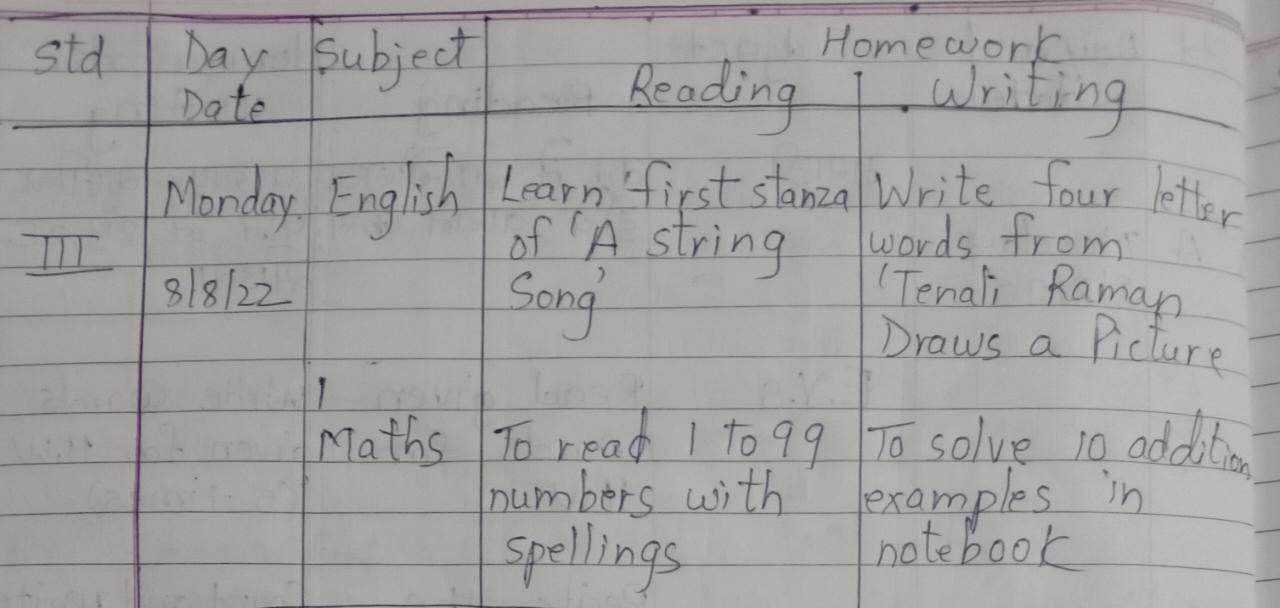 Std Day Subject Homework
Date Reading Writing
Monday English Learn 'first stanza Write four letter
III of 'A string words from
8/8/22 Song' 'Tenali Raman
Draws a Picture
Maths To read 1 to 99 To solve 10 addition
numbers with examples in
spellings notebook